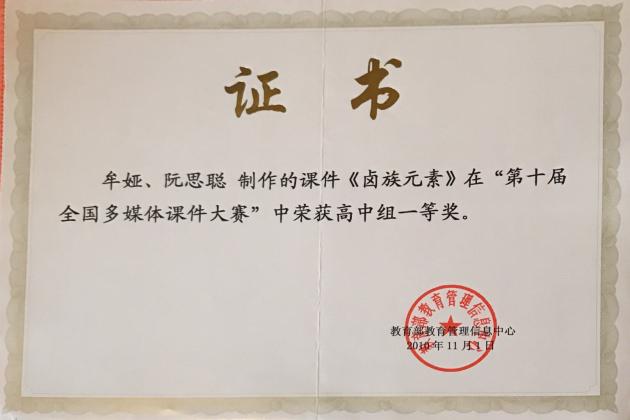 证书
牟娅、阮思聪 制作的课件《卤族元素》在“第十届
全国多媒体课件大赛”中荣获高中组一等奖。
教育部教育管理信息中心
教育部教育管理信息中心
2010年11月1日